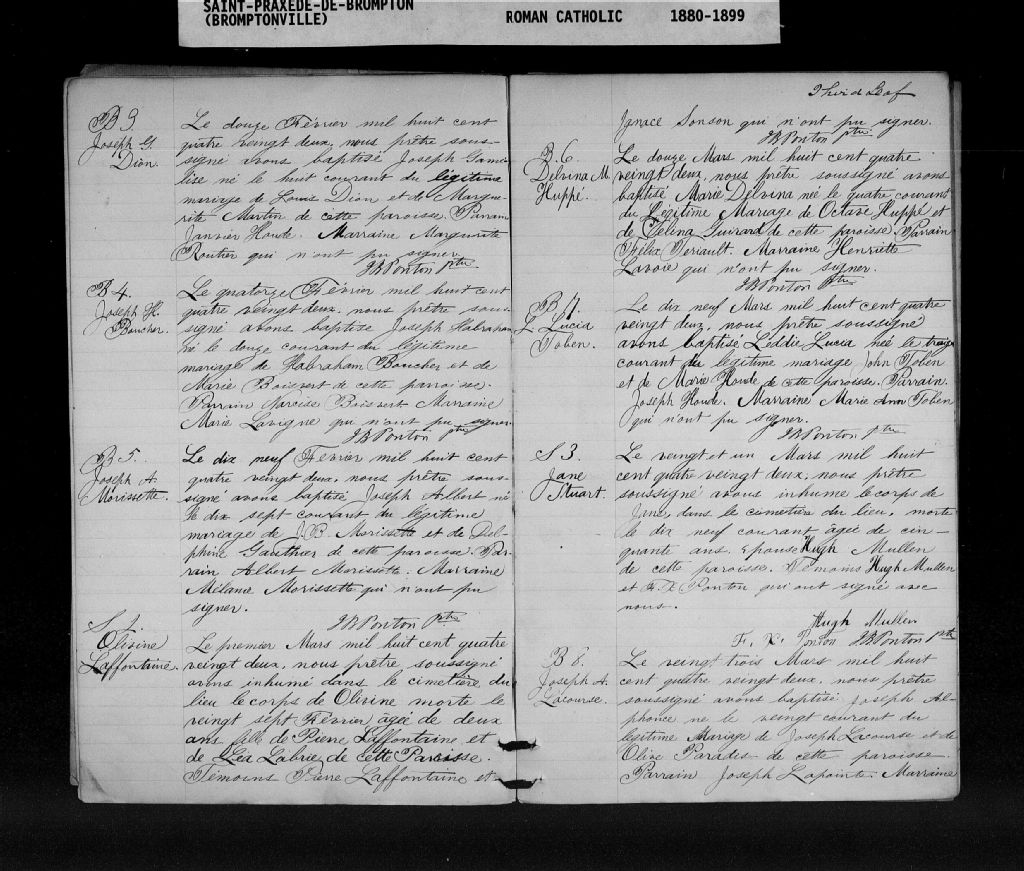 SAINT-PRAXEDE-DE-BROMPTON
(BROMPTONVILLE) ROMAN CATHOLIC 1880-1899
B 3.
Joseph G
Dion.
Le douze Février mil huit cent
quatre vingt deux, nous prêtre sous-
signé avons baptisé Joseph Game
lise né le huit courant du légitime
mariage de Louis Dion et de Margue-
rite Martin de cette paroisse. Parrain
Janvier Houde. Marraine Marguerite
Routier qui n'ont pu signer.
JB Ponton ptre
B 4.
Joseph H.
Boucher.
Le quatorze Février mil huit cent
quatre vingt deux, nous prêtre sous-
signé avons baptisé Joseph Habraham
né le douze courant du légitime
mariage de Habraham Boucher et de
Marie Boisvert de cette paroisse.
Parrain Boisvert Marraine
Marie Lavigne qui n'ont pu signer.
JB Ponton ptre
B 5.
Joseph A.
Morissette.
Le dix neuf Février mil huit cent
quatre vingt deux, nous prêtre sous-
signé avons baptisé Joseph Albert né
le dix sept courant du légitime
mariage de J.B. Morissette et de Del-
phine Gauthier de cette paroisse. Par-
rain Albert Morissette. Marraine
Mélana Morissette qui n'ont pu
signer.
JB Ponton Ptre
Olisine
Laffontaine.
Le premier Mars mil huit cent quatre
vingt deux, nous prêtre soussigné
avons inhumé dans le cimetière du
lieu le corps de Olisine morte le
vingt sept Février âgée de deux
ans fille de Pierre Laffontaine et
de Léa Labrie de cette Paroisse.
Témoins Pierre Laffontaine et
Third Leaf
Ignace Sonson qui n'ont pu signer.
JB Ponton ptre
B. 6.
Delvina M
Huppé.
Le douze Mars mil huit cent quatre
vingt deux, nous prêtre soussigné avons
baptisé Marie Delvina née le quatre courant
du Légitime Mariage de Octave Huppé et
de Celena Guirard de cette paroisse Parrain
Félix Teriault. Marraine Henriette
Lavoie qui n'ont pu signer.
JB Ponton Ptre
B 7.
L. Lucia
Toben.
Le dix neuf Mars mil huit cent quatre
vingt deux, nous prêtre soussigné
avons baptisé Leddie Lucia née le treize
courant du legitime mariage John Toben
et de Marie Houde de cette paroisse. Parrain.
Joseph Houde. Marraine Marie Ann Toben
qui n'ont pu signer.
JB Ponton ptre
S 3.
Jane
Stuart.
Le vingt et un Mars mil huit
cent quatre vingt deux, nous prêtre
soussigné avons inhume le corps de
Jane, dans le cimetière du lieu, morte
le dix neuf courant âgée de cin-
quante ans, épouse Hugh Mullen
de cette paroisse. Temoins Hugh Mullen
et F. X Ponton qui ont signé avec
nous.
Hugh Mullen
F. X. Ponton JB Ponton ptre
B 8.
Joseph A.
Lacourse.
Le vingt trois Mars mil huit
cent quatre vingt deux, nous prêtre
soussigné avons baptisé Joseph Al-
phonce né le vingt courant du
légitime Mariage de Joseph Lacourse et de
Olive Paradis de cette paroisse
Parrain Joseph Lapointe. Marraine